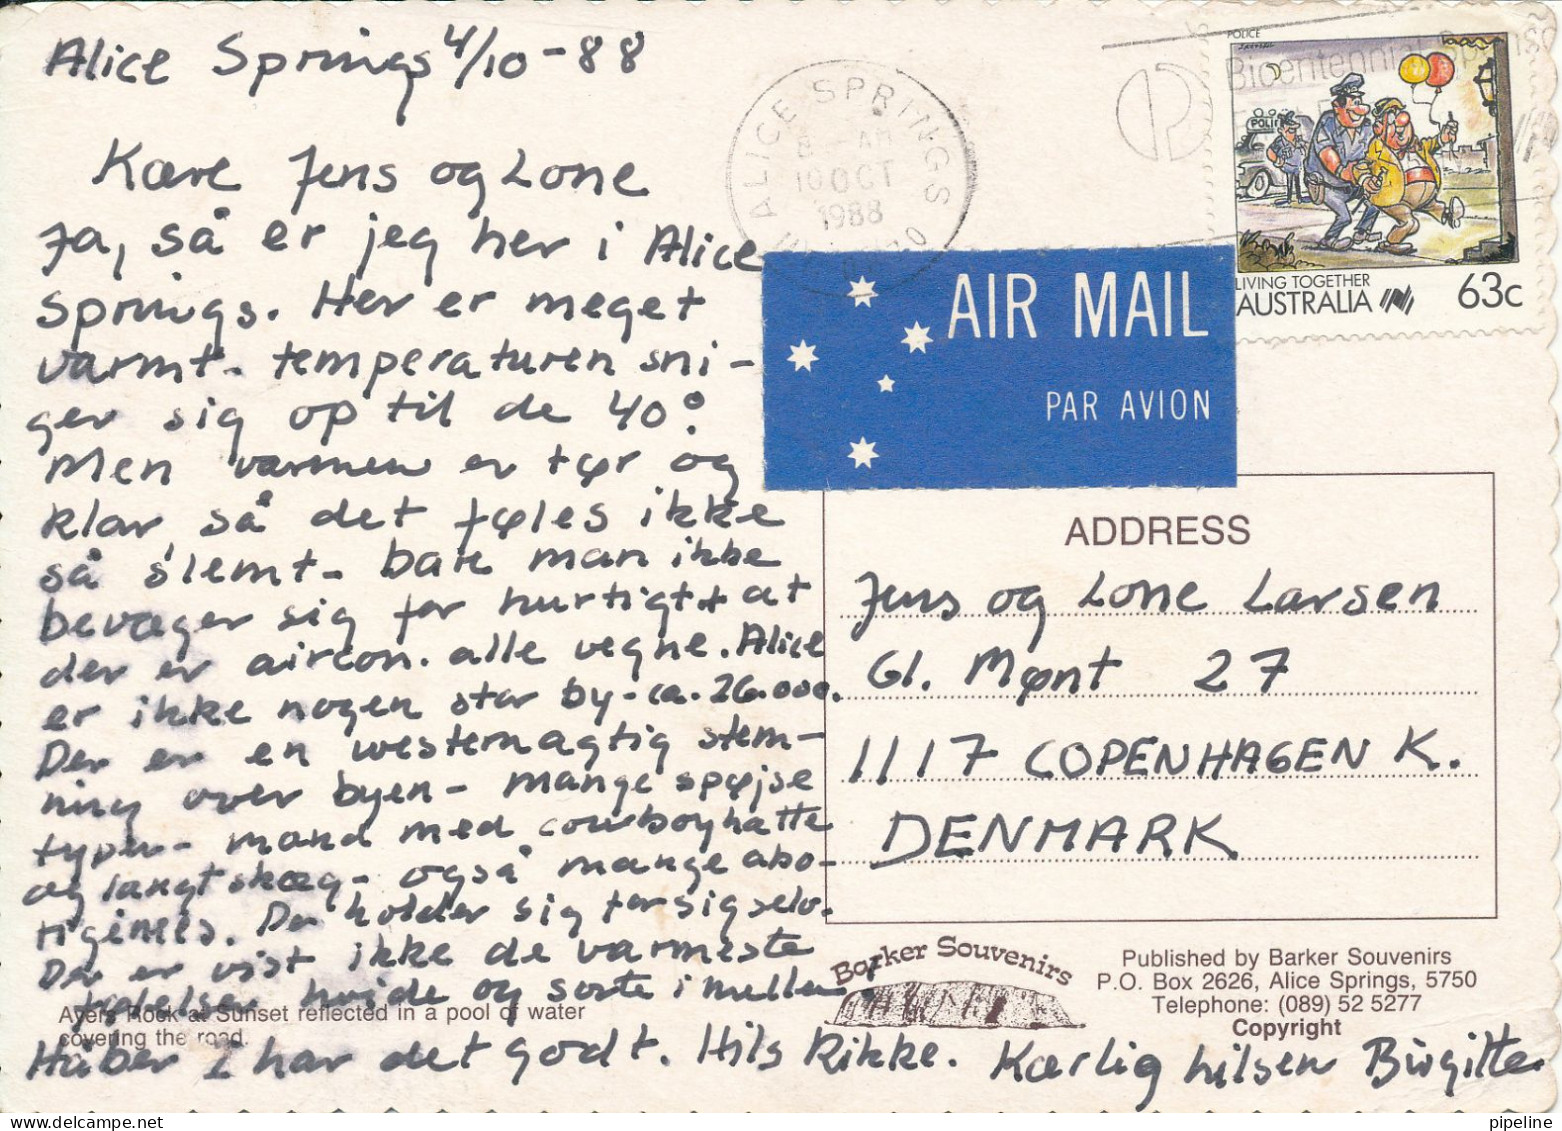 Alice Springs 4/10-88
Kære Jens og Lone
Ja, så er jeg her i Alice
Springs. Her er meget
varmt- temperaturen sni-
ger sig op til de 40°.
Men varmen er tør og
klar så det føles ikke
så slemt- bare man ikke
bevæger sig for hurtigt + at
der er aircon. alle vegne. Alice
er ikke nogen stor by- ca. 26.000.
Der er en westernagtig stem-
ning over byen- mange spøjse
typer- mænd med cowboyhatte
og langt skæg- også mange abo-
rigines. De holder sig for sig selv.
Der er vist ikke de varmeste
følelser hvide og sorte imellem.
Håber I har det godt. Hils Rikke. Kærlig hilsen Birgitte.
Ayers Rock at Sunset reflected in a pool of water
covering the road.
ALICE SPRINGS
8 - AM
10 OCT
1988
Bicentennial
POLICE
POLICE
LIVING TOGETHER
AUSTRALIA 63c
AIR MAIL
PAR AVION
ADDRESS
Jens og Lone Larsen
Gl. Mønt 27
1117 COPENHAGEN K.
DENMARK
Barker Souvenirs
Published by Barker Souvenirs
P.O. Box 2626, Alice Springs, 5750
Telephone: (089) 52 5277
Copyright
pipeline